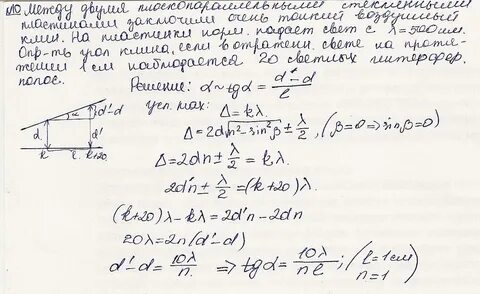 №10. Между двумя плоскопараллельными стеклянными
пластинами заключили очень тонкий воздушный
клин. На пластинки норм. падает свет с λ=500 нм.
Опр-ть угол клина, если в отражен. свете на протя-
жении 1 см наблюдается 20 светлых интерфер.
полос.
Решение: α ~ tgα = (d'-d)/l
усл. max: Δ = kλ.
Δ = 2d√(n²-sin²β) ± λ/2, (β=0 => sinβ=0)
Δ = 2dn ± λ/2 = kλ.
2d'n ± λ/2 = (k+20)λ.
α d'-d
d d'
k l k+20
(k+20)λ - kλ = 2d'n - 2dn
20λ = 2n(d'-d)
d'-d = 10λ/n. => tgα = 10λ/(nl); (l=1см n=1)